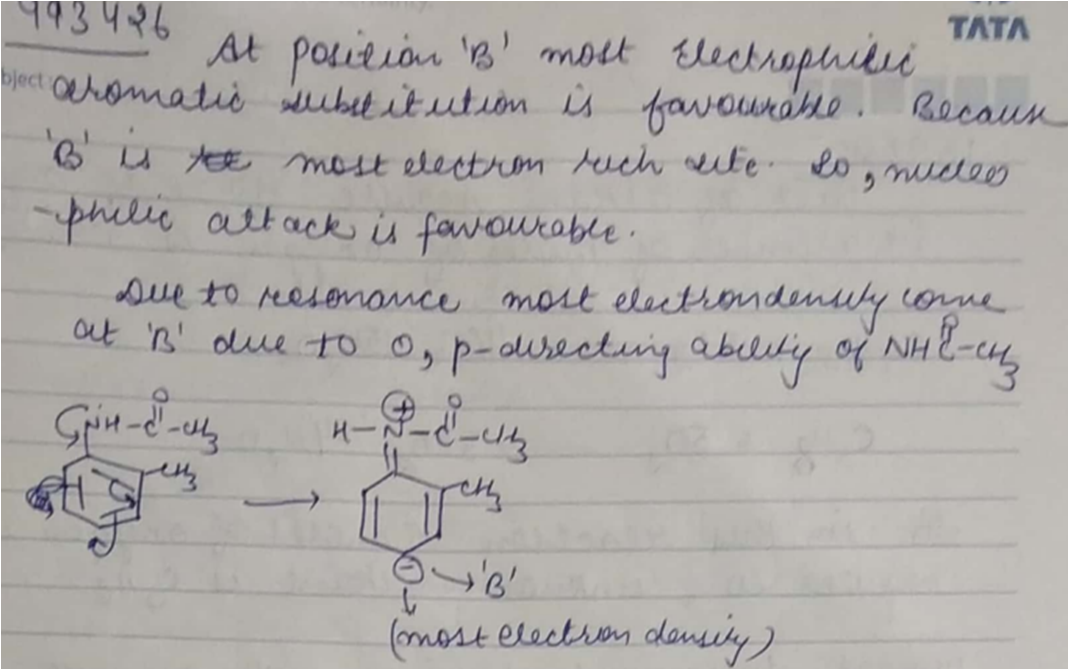 493426
TATA
bject
At position 'B' most Electrophilic
aromatic substitution is favourable. Because
'B' is most electron rich site. So, nucleo
-philic attack is favourable.
Due to resonance most electrondensity come
at 'B' due to o, p-directing ability of NHC-CH3
O
O
O
NH-C-CH3
H-N-C-CH3
+
CH3
CH3
'B'
(most electron density)